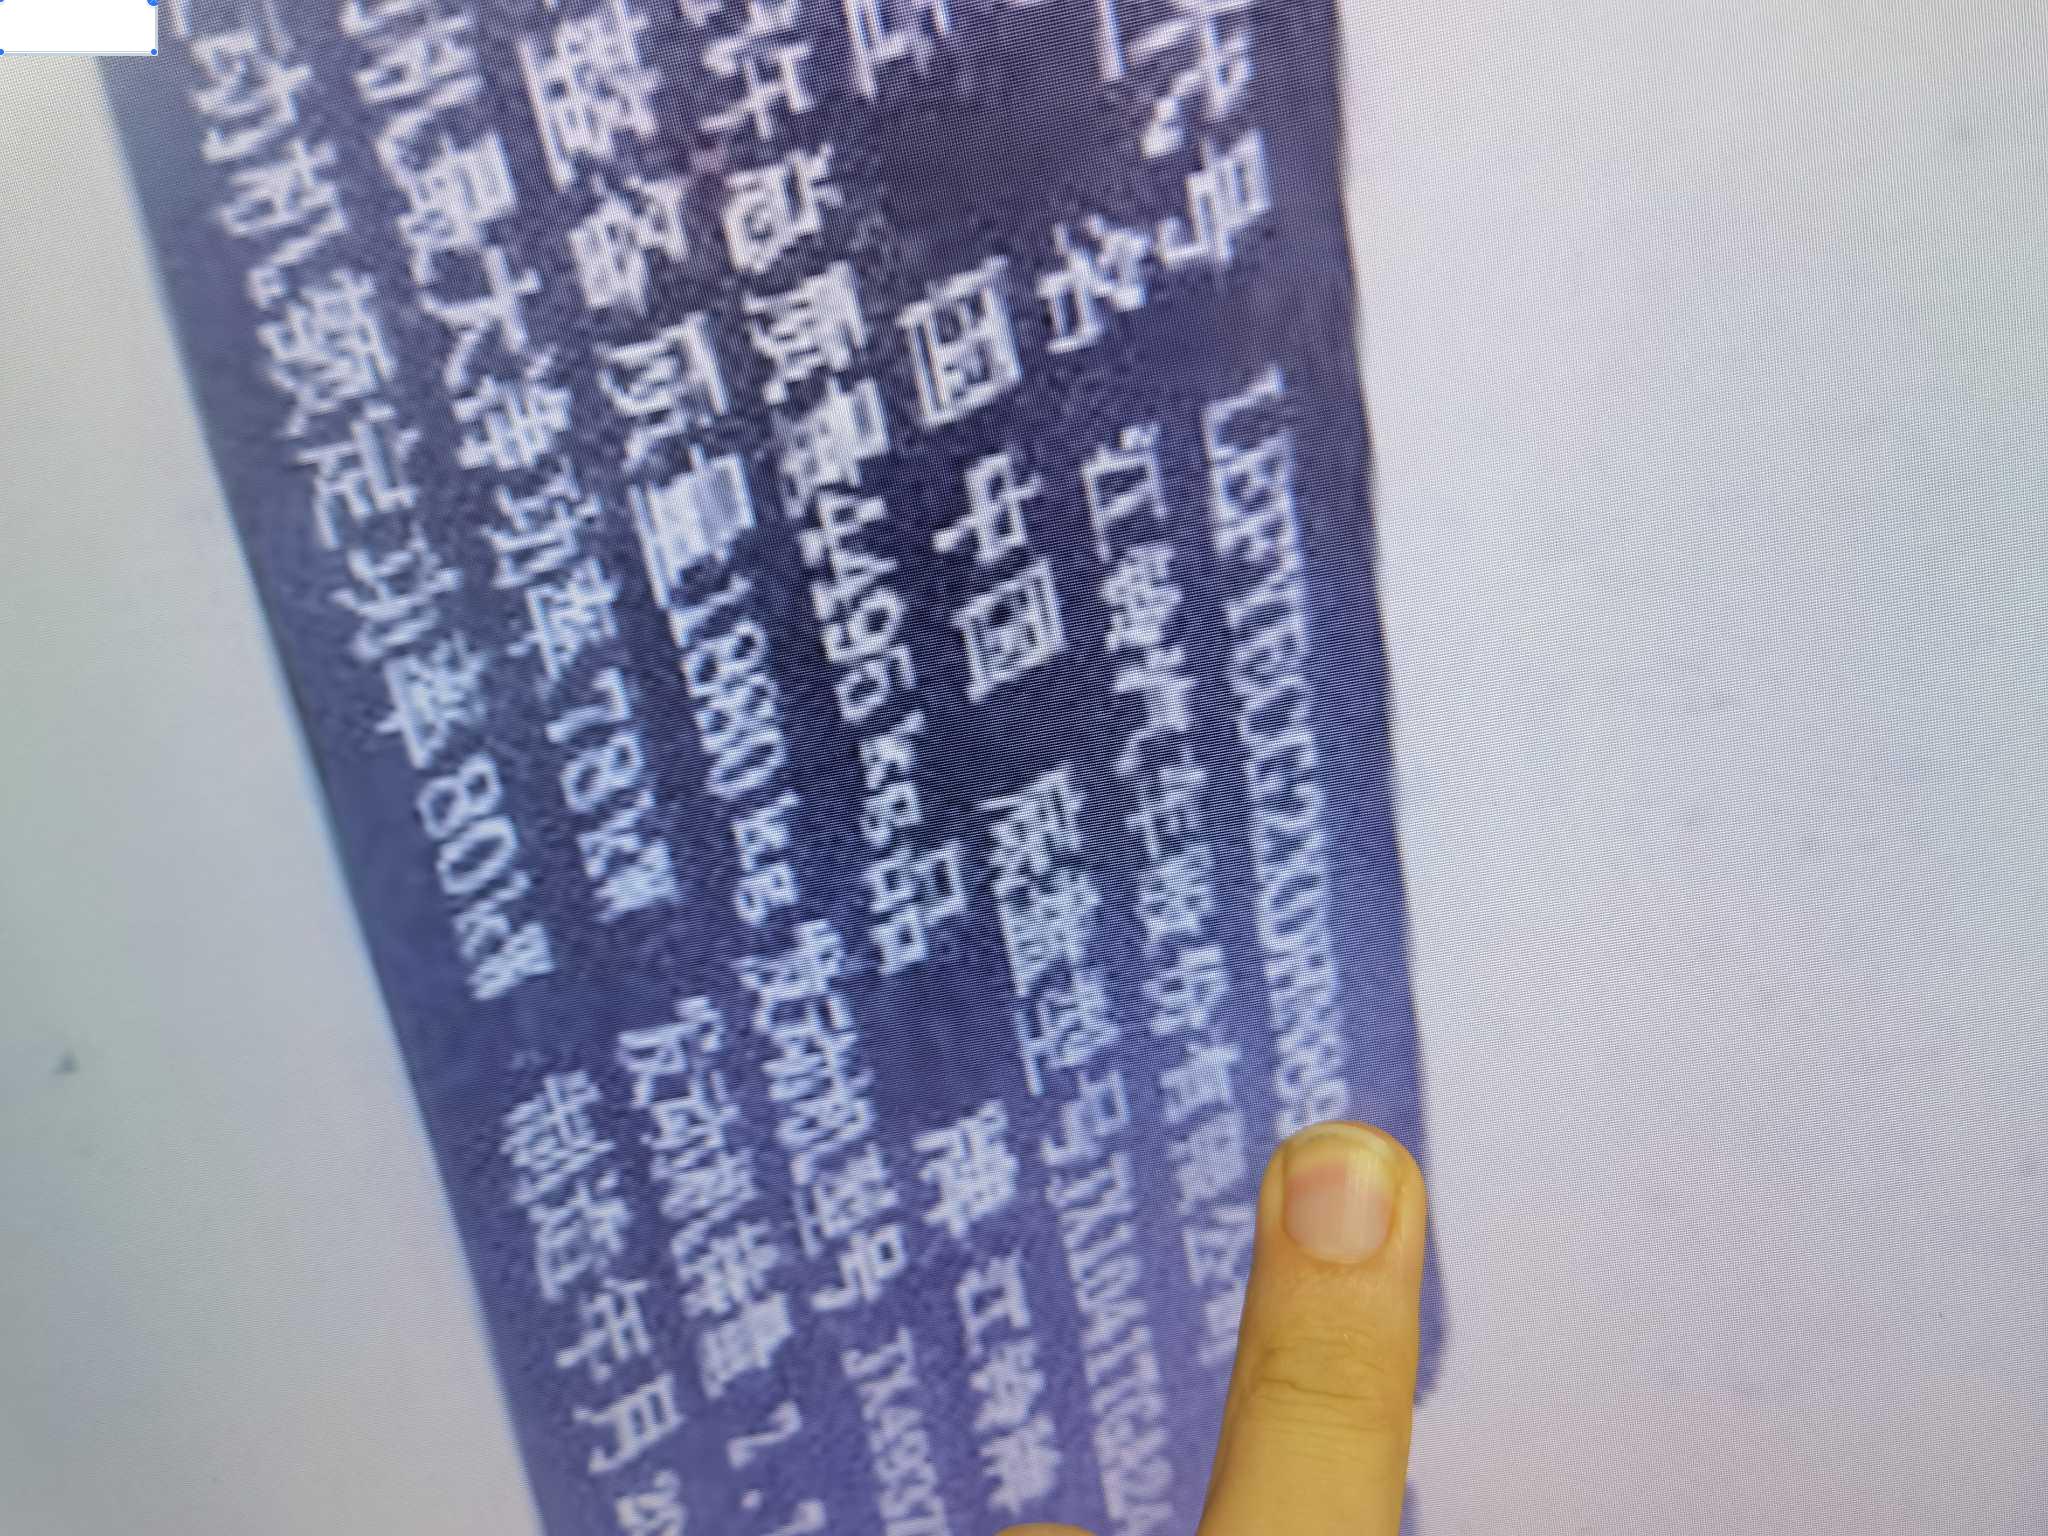 代号
称 江铃汽车股份有限公司
国 中国 底盘型号JX1041TG24A
许总质量4495kg品 牌 江铃牌
整备质量1880kg发动机型号 JX493
机最大净功率78kW 发动机排量 2.7
动机额定功率80kW 制造年月 20